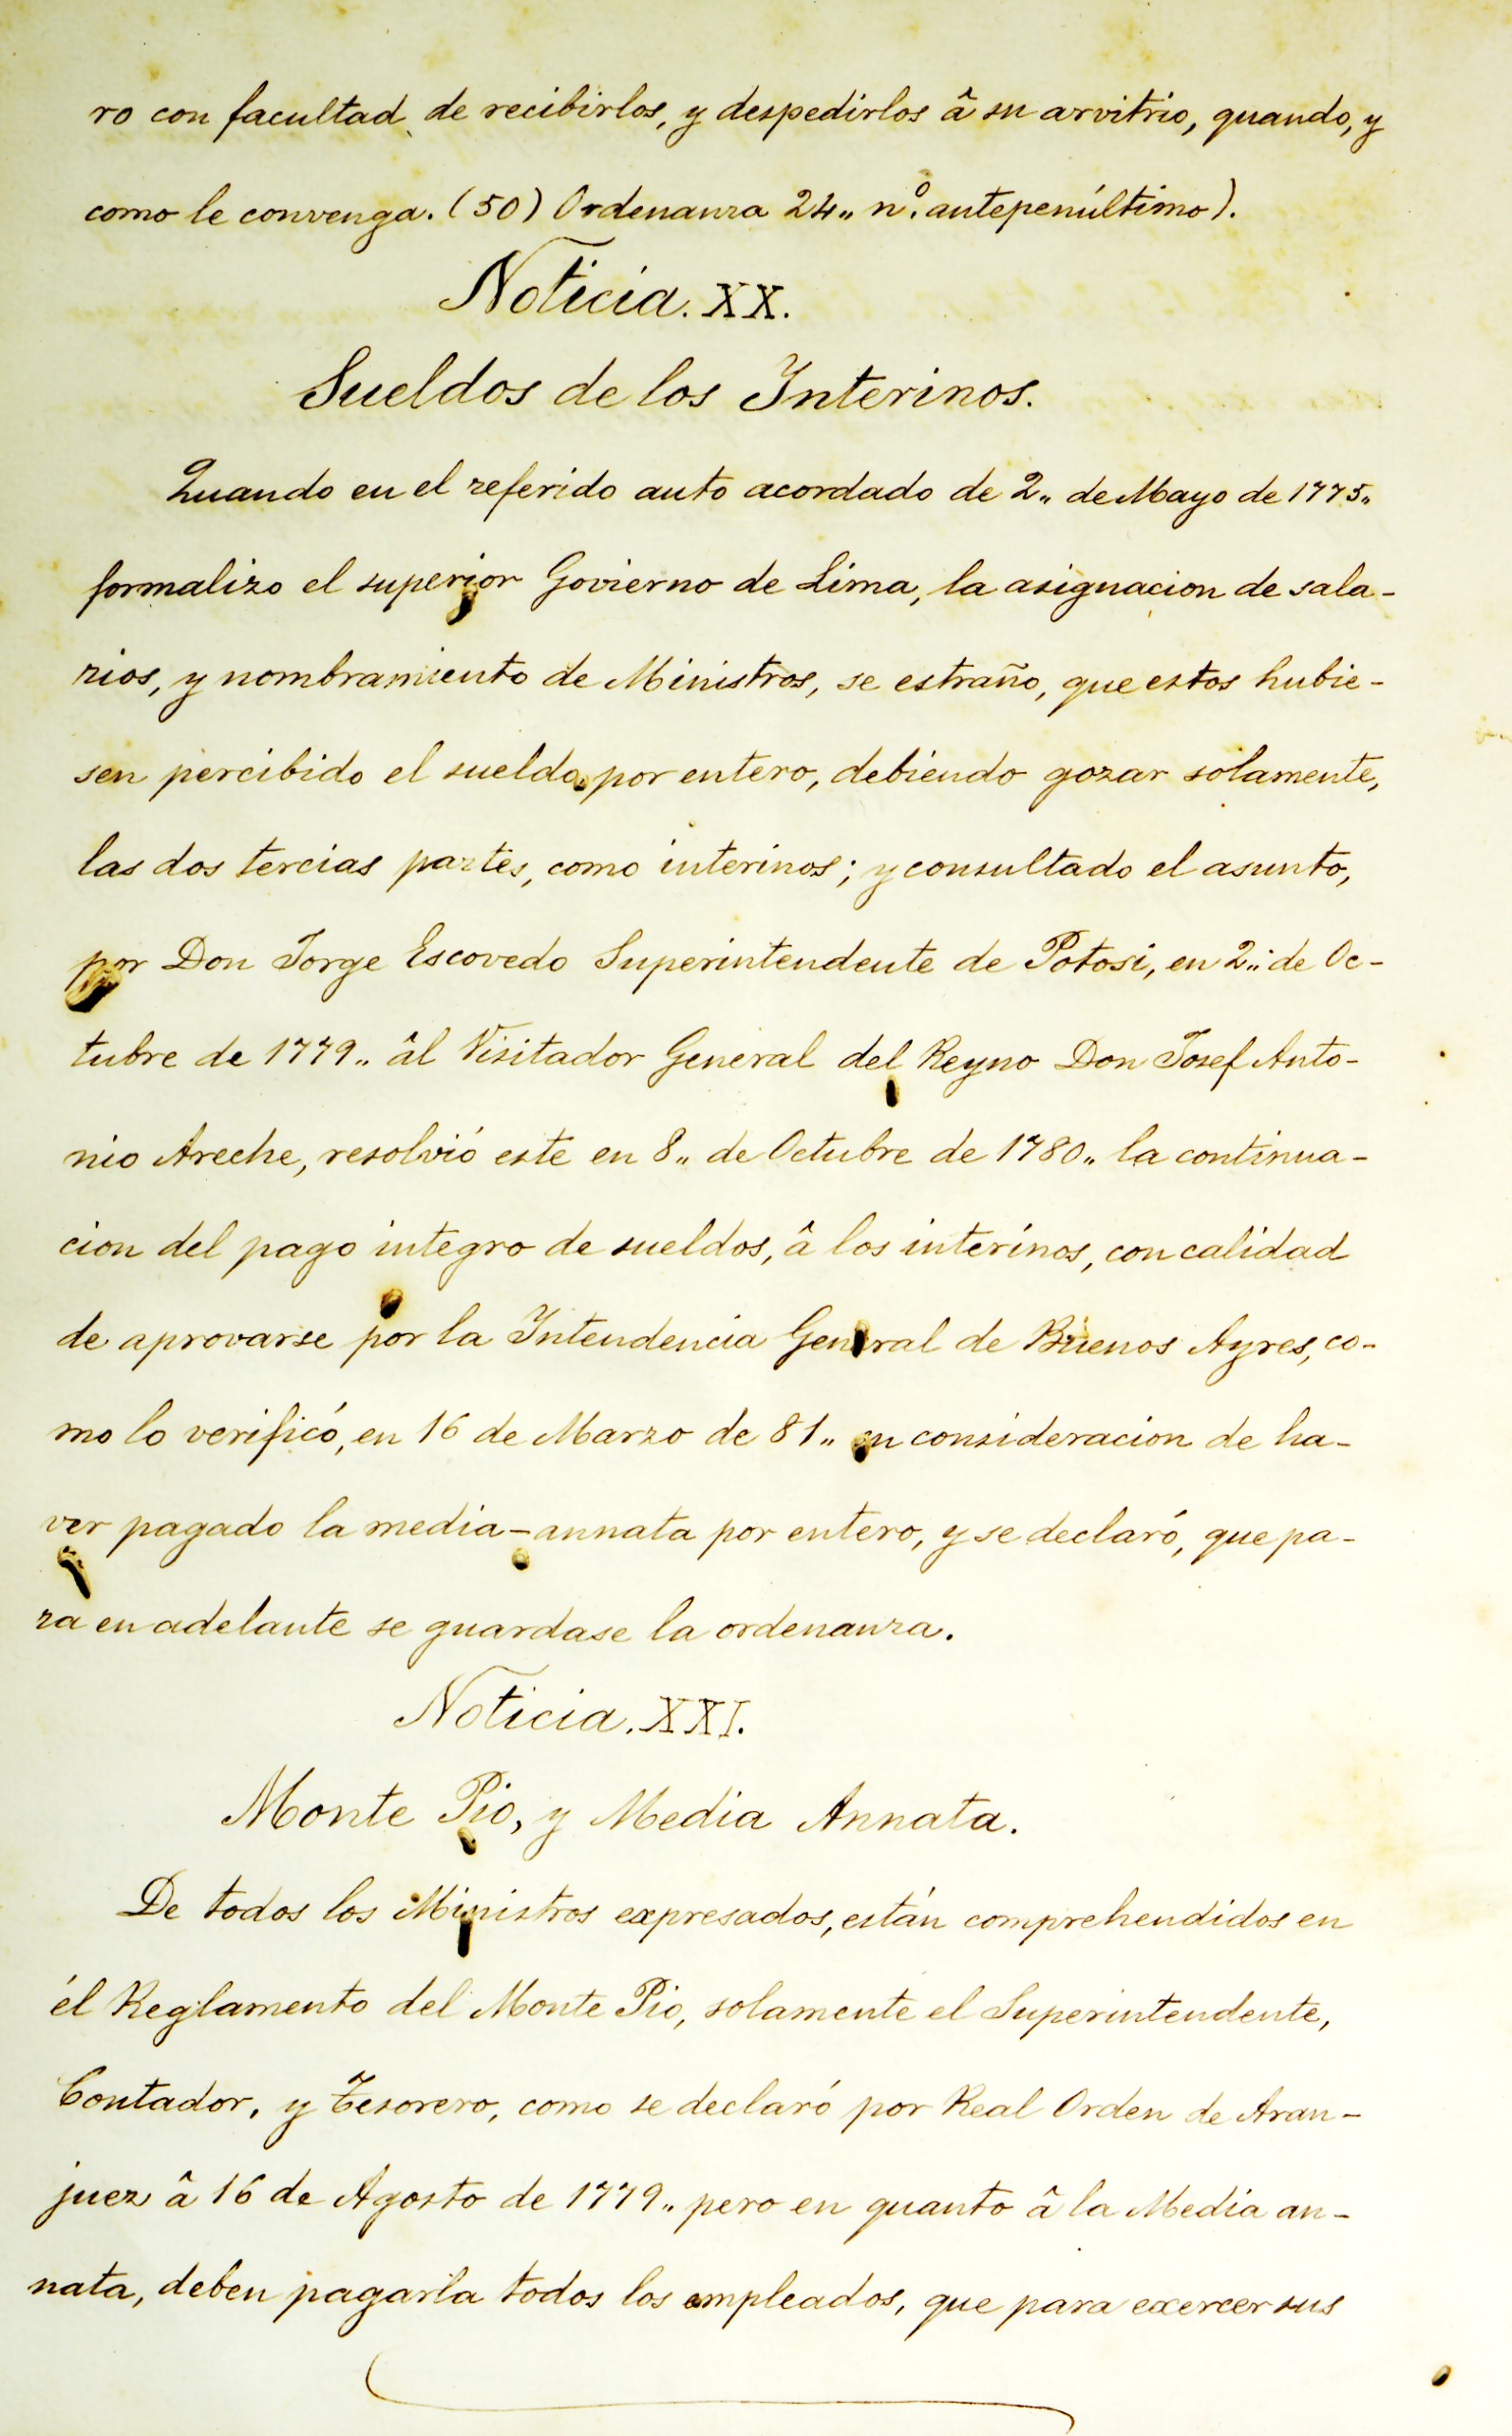 ro con facultad de recibirlos, y despedirlos â su arvitrio, quando, y
como le convenga. (50) Ordenanza 24.. nº. antepenúltimo).
Noticia. XX.
Sueldos de los Interinos.
Quando en el referido auto acordado de 2.. de Mayo de 1775..
formalizo el superior Govierno de Lima, la asignacion de sala-
rios, y nombramiento de Ministros, se estraño, que estos hubie-
sen percibido el sueldo por entero, debiendo gozar sólamente,
las dos tercias partes, como interinos; y consultado el asunto,
por Don Jorge Escovedo Superintendente de Potosi, en 2.. de Oc-
tubre de 1779.. âl Visitador General del Reyno Don Josef Anto-
nio Areche, resolvió este en 8.. de Octubre de 1780.. la continua-
cion del pago integro de sueldos, â los interinos, con calidad
de aprovarse por la Intendencia General de Buenos Ayres, co-
mo lo verificó, en 16 de Marzo de 81.. en consideracion de ha-
ver pagado la media-annata por entero, y se declaró, que pa-
ra en adelante se guardase la ordenanza.
Noticia. XXI.
Monte Pio, y Media Annata.
De todos los Ministros expresados, están comprehendidos en
él Reglamento del Monte Pio, solamente el Superintendente,
Contador, y Tesorero, como se declaró por Real Orden de Aran-
juez â 16 de Agosto de 1779.. pero en quanto â la Media an-
nata, deben pagarla todos los empleados, que para exercer sus